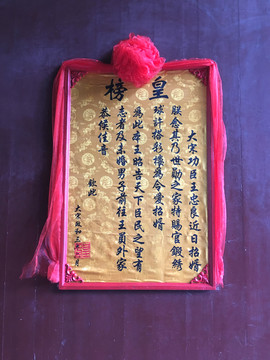 皇榜
大宋功臣王忠良近日招婿
朕念其乃世勋之家特赐官锻绣
球许搭彩楼为令爱招婿
为此本王昭告天下臣民之望有
志者及未婚男子前往王员外家
恭候佳音
钦此
大宋政和三年
月